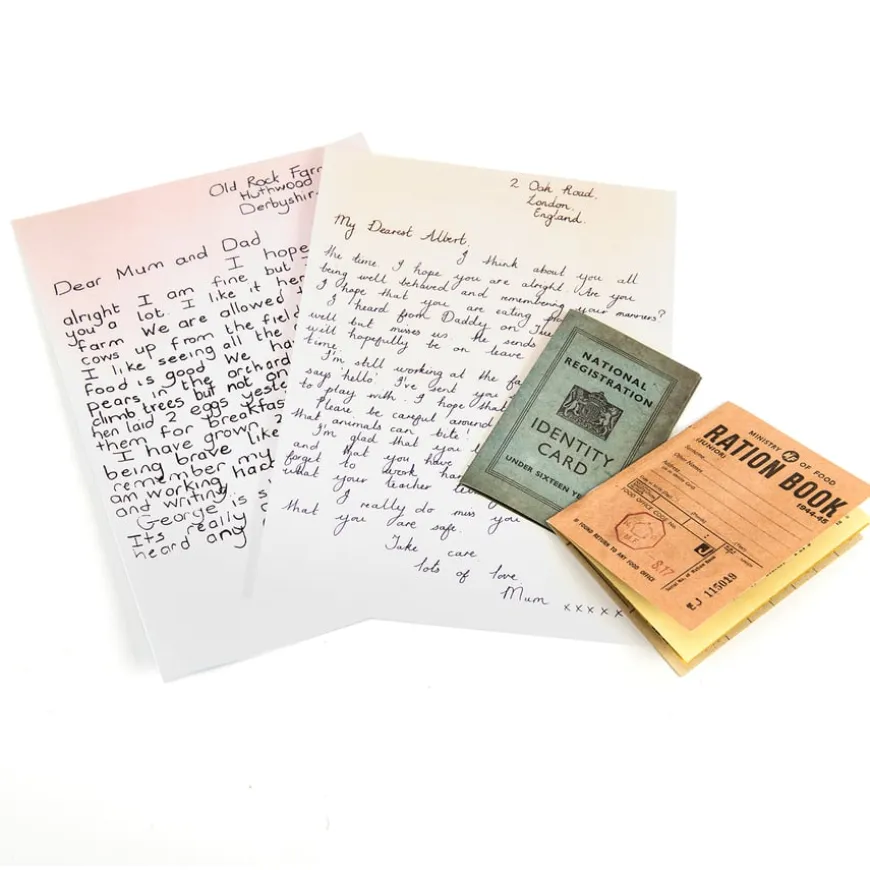 Old Rock Far
Huthwood
Derbyshir
Dear Mum and Dad
I hope
alright I am fine but I
you a lot. I like it her
farm We are allowed t
cows up from the field
I like seeing all the
Food is good We ha
pears in the orchard
climb trees but not on
hen laid 2 eggs yeste
them for breakfas
I have grown
being brave like
remember my
am working hard
and writing
George is s
Its really
heard any
2 Oak Road,
London,
England.
My Dearest Albert,
I think about you all
the time I hope you are alright. Are you
being well behaved and remembering your manners?
I hope that you are eating
I heard from Daddy on Tue
well but misses us. He sends
will hopefully be on leave
time.
I'm still working at the fa
says 'hello'. I've sent you
to play with. I hope that
Please be careful around
that animals can bite!
I'm glad that you
and that you have
forget to work har
what your teacher
I really do miss you
that you are safe.
Take care
lots of love
Mum xxxxx
NATIONAL
REGISTRATION
IDENTITY
CARD
UNDER SIXTEEN YE
MINISTRY OF FOOD
RATION BOOK
(JUNIOR)
1944-45
Surname
Other Names
Address
FOOD OFFICE CODE No.
IF FOUND RETURN TO ANY FOOD OFFICE
M.F.
-8.17
Serial No. of Ration Book
J 115019